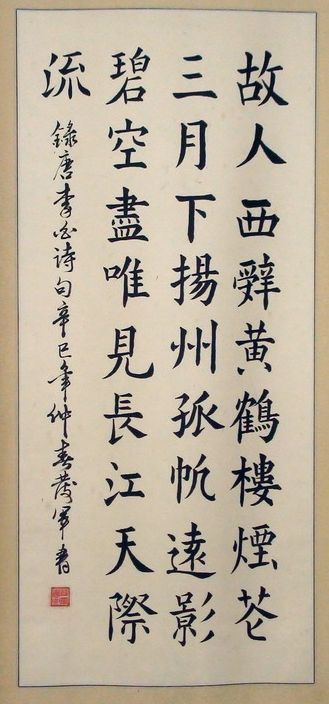 故人西辭黃鶴樓煙花
三月下揚州孤帆遠影
碧空盡唯見長江天際
流
錄唐李白詩句辛巳年仲春軍書